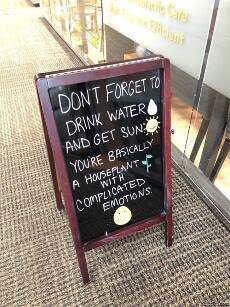 Care
Fun and Efficient
DON'T FORGET TO
DRINK WATER
AND GET SUN
YOU'RE BASICALLY
A HOUSEPLANT
WITH
COMPLICATED
EMOTIONS.